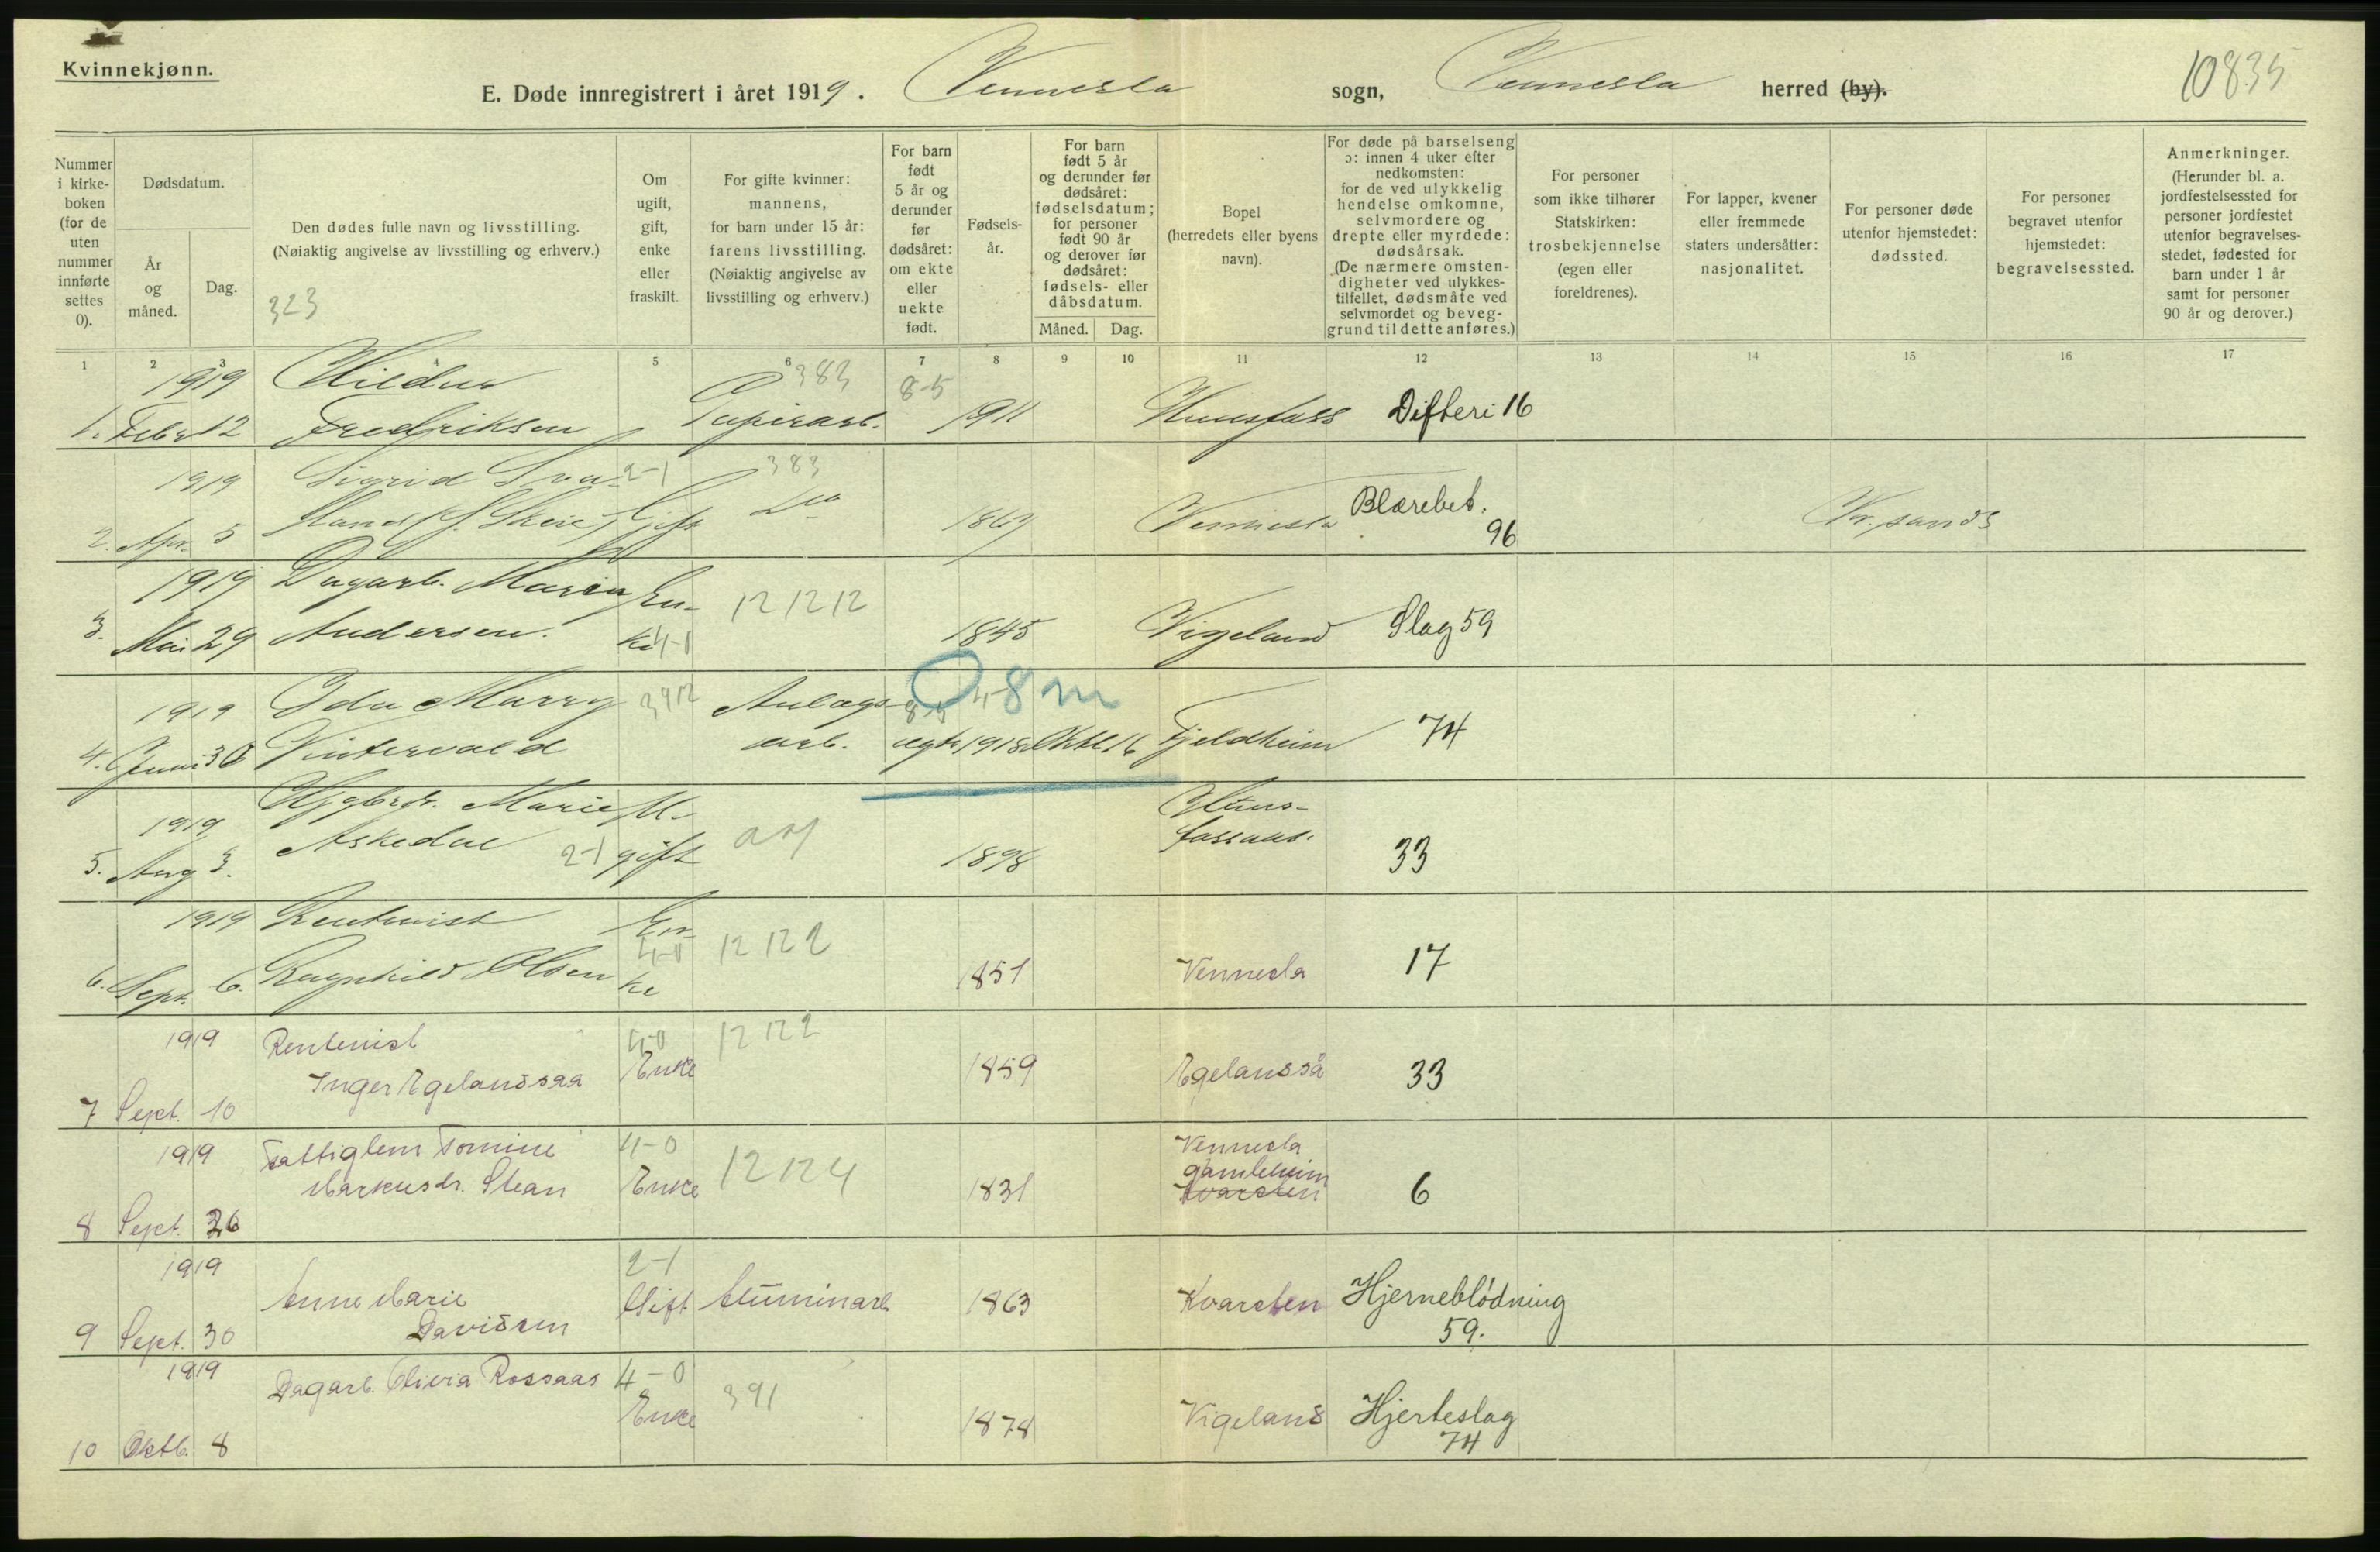 Kvinnekjønn.
10835
E. Døde innregistrert i året 1919. Vennesla sogn, Vennesla herred (by).
Nummer i kirke-boken (for de uten nummer innførte settes 0).
Dødsdatum.
År og måned.
Dag.
Den dødes fulle navn og livsstilling.
(Nøiaktig angivelse av livsstilling og erhverv.)
323
Om ugift, gift, enke eller fraskilt.
For gifte kvinner: mannens, for barn under 15 år: farens livsstilling. (Nøiaktig angivelse av livsstilling og erhverv.)
For barn født 5 år og derunder før dødsåret: om ekte eller uekte født.
Fødsels-år.
For barn født 5 år og derunder før dødsåret: fødselsdatum; for personer født 90 år og derover før dødsåret: fødsels- eller dåbsdatum.
Måned. Dag.
Bopel (herredets eller byens navn).
For døde på barselseng ɔ: innen 4 uker efter nedkomsten: for de ved ulykkelig hendelse omkomne, selvmordere og drepte eller myrdede: dødsårsak. (De nærmere omsten-digheter ved ulykkes-tilfellet, dødsmåte ved selvmordet og beveg-grund til dette anføres.)
For personer som ikke tilhører Statskirken: trosbekjennelse (egen eller foreldrenes).
For lapper, kvener eller fremmede staters undersåtter: nasjonalitet.
For personer døde utenfor hjemstedet: dødssted.
For personer begravet utenfor hjemstedet: begravelsessted.
Anmerkninger. (Herunder bl. a. jordfestelsessted for personer jordfestet utenfor begravelses-stedet, fødested for barn under 1 år samt for personer 90 år og derover.)
1 2 3 4 5 6 7 8 9 10 11 12 13 14 15 16 17
1919 Hildur 383 8-5
1. Febr 12 Fredriksen Papirarb. 1911 Hunsfoss Difteri 16
1919 Sigrid 2-1 383
2. Apr. 5 Gift Do 1869 Vennesla Blærebet. 96 Kr.sand S
1919 Dagarb. Maria En- 12 12 12
3. Mai 29 Andersen. ke 4-0 1845 Vigeland Slag 59
1919 Ida Marry 3912 Anlægs- 8-5 0 8 m
4. Juni 30 Vintervold arb. ægte 1918 Oktb 16 Fjeldheim 74
1919 Marie U- Huns-
5. Aug 3. Askedal 2-1 gift 1898 fossaas. 33
1919 Rentenist En- 4-0 12 12 2
6. Sept. 6. Ragnhild Olsen ke 1851 Vennesla 17
1919 Rentenist 4-0 12 12 2
7 Sept. 10 Inger Egelandsaa Enke 1859 Egelandså 33
1919 Fattiglem Tomine 4-0 12 12 4 Vennesla gamleheim
8 Sept. 26 Markusdr. Stean Enke 1831 Kvarsten 6
1919 2-1
9 Sept. 30 Anne Marie Davidsen Gift Aluminarb 1863 Kvarsten Hjerneblødning 59.
1919 Dagarb. Olivia Rossaas 4-0 391
10 Oktb. 8 Enke 1878 Vigeland Hjerteslag 74